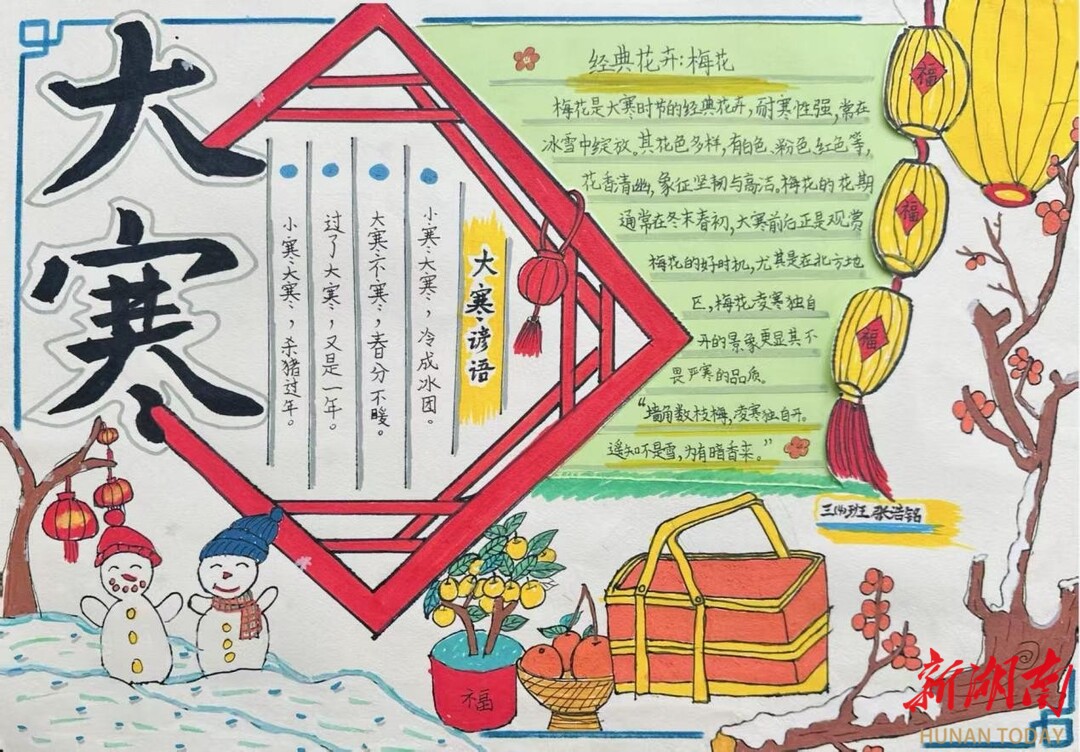 大寒
大寒谚语
小寒大寒，冷成冰团。
大寒不寒，春分不暖。
过了大寒，又是一年。
小寒大寒，杀猪过年。
经典花卉：梅花
梅花是大寒时节的经典花卉，耐寒性强，常在
冰雪中绽放。其花色多样，有白色、粉色、红色等，
花香清幽，象征坚韧与高洁。梅花的花期
通常在冬末春初，大寒前后正是观赏
梅花的好时机，尤其是在北方地
区，梅花凌寒独自
开的景象更显其不
畏严寒的品质。
“墙角数枝梅，凌寒独自开。
遥知不是雪，为有暗香来。”
福
福
福
三(4)班 张浩铭
福
新湖南
HUNAN TODAY